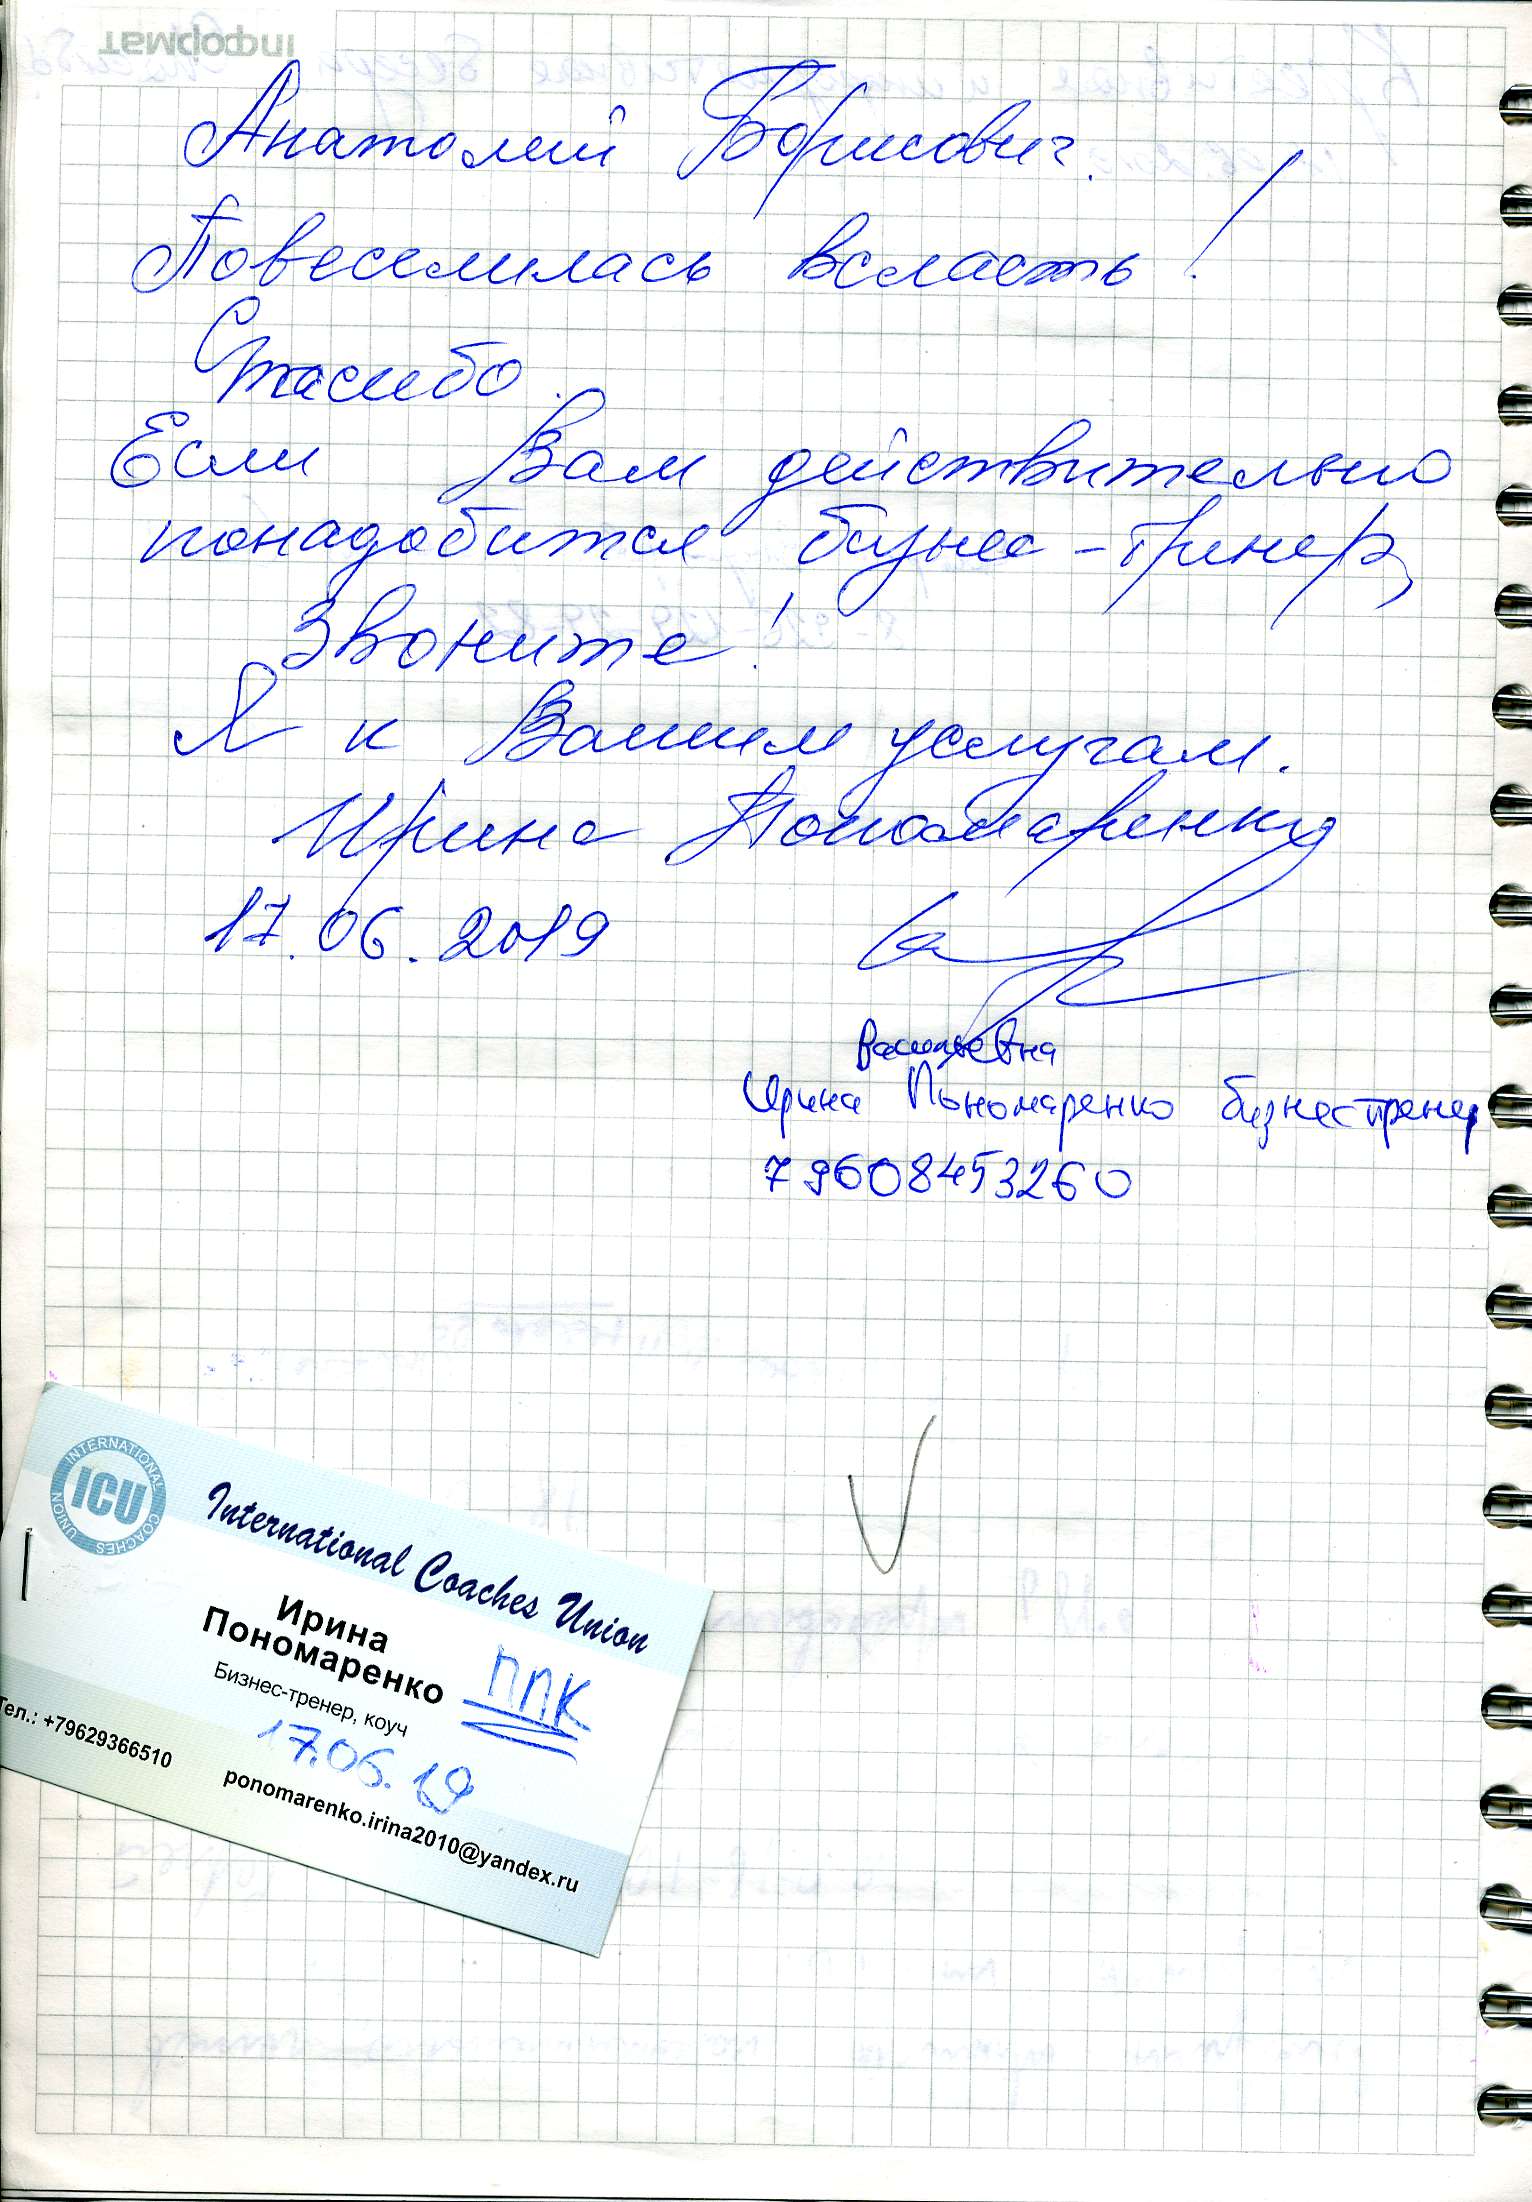 інформат
Анатолий Борисович.
Повеселилась всласть!
Спасибо.
Если Вам действительно
понадобится бизнес-тренер,
Звоните!
Я к Вашим услугам.
Ирина Пономаренко
17.06.2019
Васильевна
Ирина Пономаренко бизнестренер
79608453260
INTERNATIONAL COACHES UNION
ICU
International Coaches Union
Ирина
Пономаренко
ППК
Бизнес-тренер, коуч
17.06.19
Тел.: +79629366510
ponomarenko.irina2010@yandex.ru